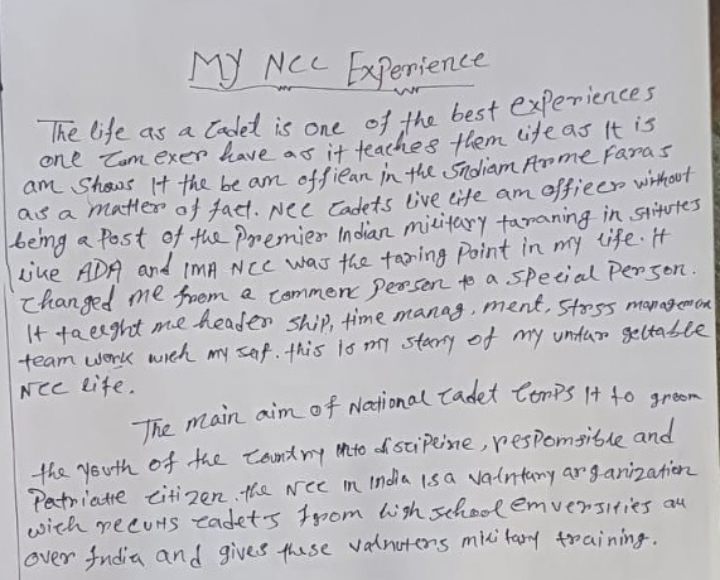 My NCC Experience
The life as a Cadet is one of the best experiences
one can exer have as it teaches them life as It is
am Shows It the be am offiean in the Indiam Arome Faras
as a matter of fact. NCC Cadets live life am officer without
being a Post of the Premier Indian military taraning in stitutes
like ADA and IMA NCC was the taring Point in my life. It
changed me from a commere Person to a special Person.
It taeught me header ship, time manag. ment, stress
team work wich my saf. this is my starry of my
NCC life.
The main aim of National Cadet Corps It to groom
the youth of the Country into discipeine, responsible and
Patriatie citizen. the NCC in India is a valntany arganization
wich recuits cadets from high school emversities all
over India and gives these valnuters military training.